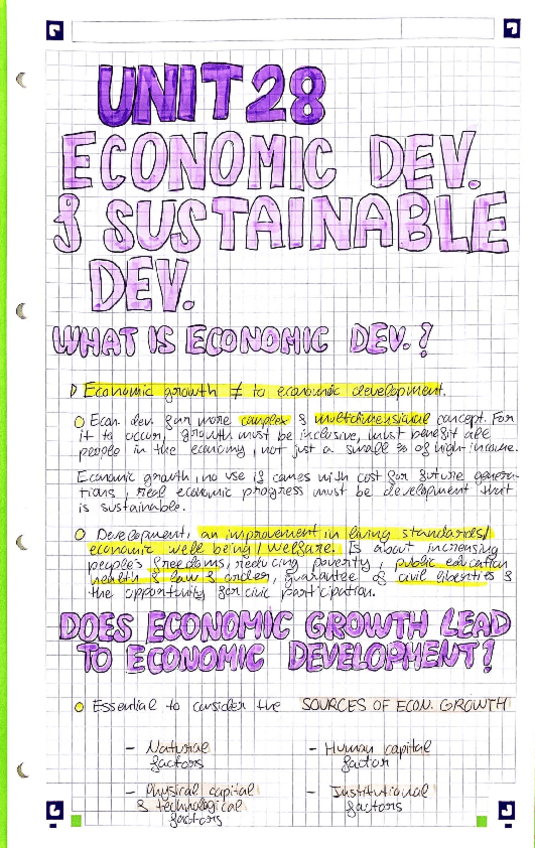 UNIT 28
ECONOMIC DEV.
& SUSTAINABLE
DEV.
WHAT IS ECONOMIC DEV.?
Economic growth ≠ to economic development.
Econ. dev. far more complex & multidimensional concept. For
it to occur, growth must be inclusive, must benefit all
people in the economy, not just a small % of high-income.
Economic growth, no use is comes with cost for future genera-
tions, real economic progress must be development that
is sustainable.
Development, an improvement in living standards/
economic well being/welfare. Is about increasing
people's freedoms, reducing poverty, public education
health & law & order, guarantee of civil liberties &
the opportunity for civic participation.
DOES ECONOMIC GROWTH LEAD
TO ECONOMIC DEVELOPMENT?
Essential to consider the SOURCES OF ECON. GROWTH
- Natural factors
- Human capital factor
- Physical capital & technological factors
- Institutional factors